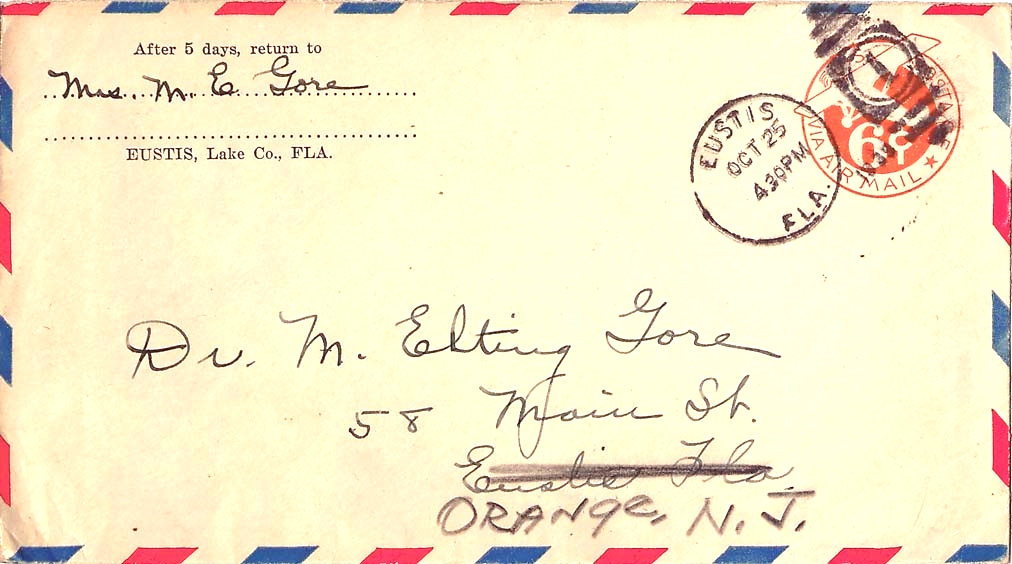 After 5 days, return to
Mrs. M. E Gore
EUSTIS, Lake Co., FLA.
EUSTIS
OCT 25
430PM
FLA.
6¢
VIA AIR MAIL
Dr. M. Elting Gore
58 Main St.
Eustis Fla.
ORANGE, N. J.